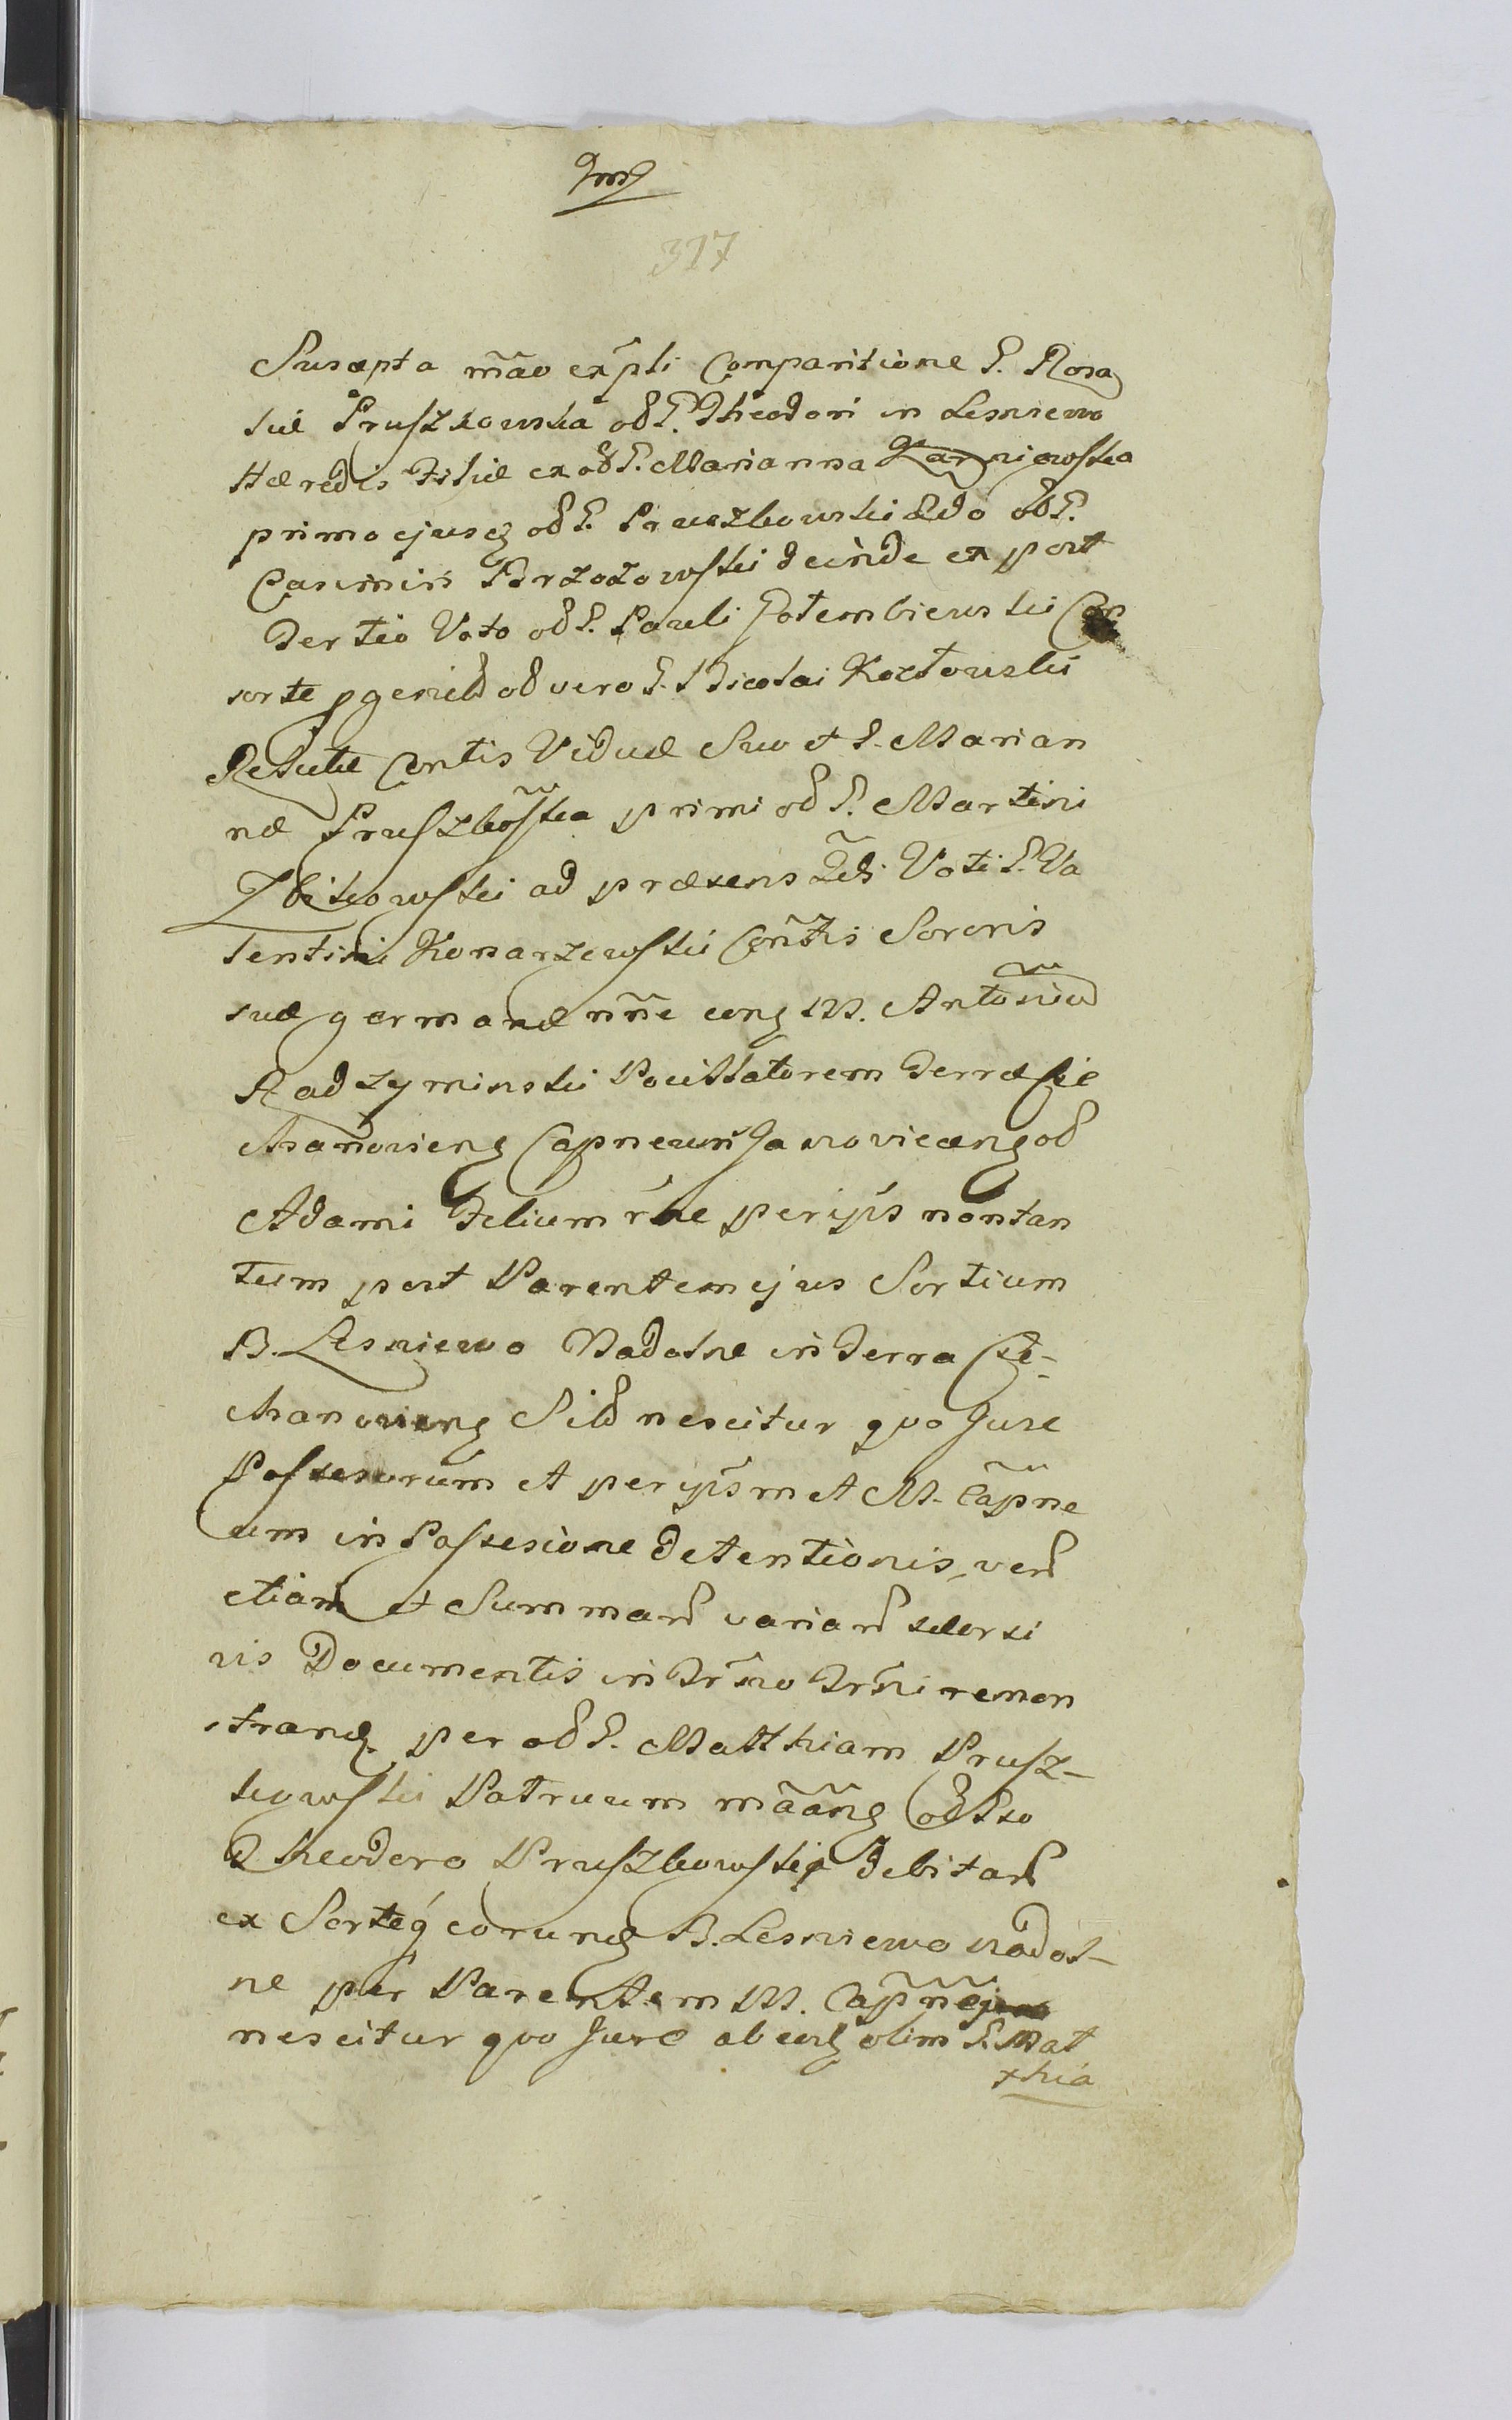 317
Suscepta mãeo exp̃li Comparitione G. Rosa
liæ Pruszkowska olĩ G. Theodori in Lesniewo
Hæredis Filiæ ex olĩ G. Marianna Karniowska
primo ejusq olĩ G. Pruszkowski 2do olĩ G.
Casimiri Brzozowski deinde ex post
Tertio Voto olĩ G. Pauli Gołembiewski Con
sorte pgenitæ olĩ vero G. Nicolai Kozłowski
Relictæ Contis Viduæ Suo et G. Marian
næ Pruszkõska primi olĩ G. Martini
Zbikowski ad præsens 2di Voti G. Va
lentini Konarzewski Cõntis Sororis
suæ germanæ nñe cong M. Antoniũ
Radzyminski Vocillatorem Terræ Cie
chanovieng Capneum Janovieceng olĩ
Adami Filium rñe peripsĩs nontan
tum post Parentem ejus Sortium
B. Lesniewo Nadolne in Terra Cie-
chanovieng Sitĩ nescitur quo Jure
Possessorum et peripsĩs met M. Cãpne
um in Possesione detentionis, verũ
etiam et Summarũ variarũ
vis Documentis in Tr̃mo Tr̃mi remon
strand. per olĩ G. Matthiam Prusz-
kowski Patruum mãang olĩ Gso
Theodoro Pruszkowski debitarũ
ex Sorteq eorund B. Lesniewo nadol-
ne per Parentem M. Cãpnẽi
nescitur quo Jure ab eod olim G. Mat
thia